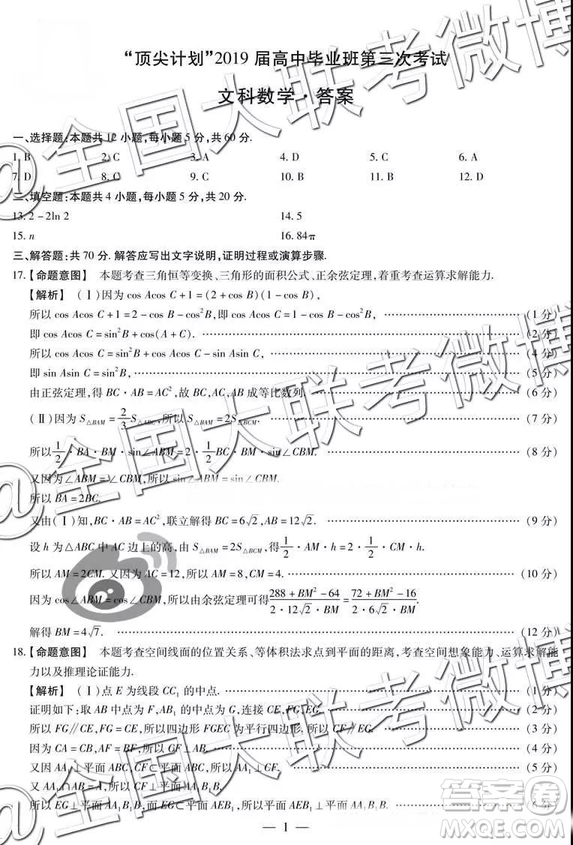 “顶尖计划”2019 届高中毕业班第三次考试
文科数学·答案
一、选择题:本题共 12 小题,每小题 5 分,共 60 分.
1. B 2. C 3. A 4. D 5. C 6. A
7. D 8. C 9. A 10. D 11. C 12. D
二、填空题:本题共 4 小题,每小题 5 分,共 20 分.
13. 2 - 2ln 2 14. 5
15. n 16. 84π
三、解答题:共 70 分. 解答应写出文字说明,证明过程或演算步骤.
17.【命题意图】 本题考查三角恒等变换、三角形的面积公式、正余弦定理,着重考查运算求解能力.
【解析】 (Ⅰ)因为 cos Acos C + 1 = (2 + cos B)(1 - cos B),
所以 cos Acos C + 1 = 2 - cos B - cos²B,即 cos Acos C = 1 - cos B - cos²B, (1 分)
即 cos Acos C = sin²B + cos(A + C). (2 分)
所以 cos Acos C = sin²B + cos Acos C - sin Asin C, (4 分)
即 sin Asin C = sin²B. (5 分)
由正弦定理,得 BC · AB = AC²,故 BC, AC, AB 成等比数列. (6 分)
(Ⅱ)因为 S△BAM = 2/3 S△ABC,所以 S△BAM = 2S△BCM, (7 分)
所以 1/2 · BA · BM · sin∠ABM = 2 · 1/2 · BC · BM · sin∠CBM. (8 分)
又因为∠ABM = ∠CBM,所以 sin∠ABM = sin∠CBM.
所以 BA = 2BC.
又由(Ⅰ)知, BC · AB = AC²,联立解得 BC = 6√2, AB = 12√2. (9 分)
设 h 为△ABC 中 AC 边上的高,由 S△BAM = 2S△BCM,得 1/2 · AM · h = 2 · 1/2 · CM · h.
所以 AM = 2CM. 又因为 AC = 12,所以 AM = 8, CM = 4. (10 分)
因为 cos∠ABM = cos∠CBM,所以由余弦定理可得 (288 + BM² - 64)/(2 · 12√2 · BM) = (72 + BM² - 16)/(2 · 6√2 · BM).
解得 BM = 4√7. (12 分)
18.【命题意图】 本题考查空间线面的位置关系、等体积法求点到平面的距离,考查空间想象能力、运算求解能
力以及推理论证能力.
【解析】 (Ⅰ)点 E 为线段 CC₁ 的中点. (1 分)
证明如下:取 AB 中点为 F, AB₁ 的中点为 G,连接 CF, FG, EG. (2 分)
所以 FG∥CE, FG = CE,所以四边形 FGEC 为平行四边形,所以 CF∥EG. (3 分)
因为 CA = CB, AF = BF,所以 CF⊥AB. (4 分)
又因 AA₁⊥平面 ABC, CF⊂平面 ABC,所以 AA₁⊥CF. (5 分)
又 AA₁∩AB = A,所以 CF⊥平面 AA₁B₁B. (6 分)
所以 EG⊥平面 AA₁B₁B,而 EG⊂平面 AEB₁,所以平面 AEB₁⊥平面 AA₁B₁B.
— 1 —
@全国大联考微博
答案圈
MXQE.COM